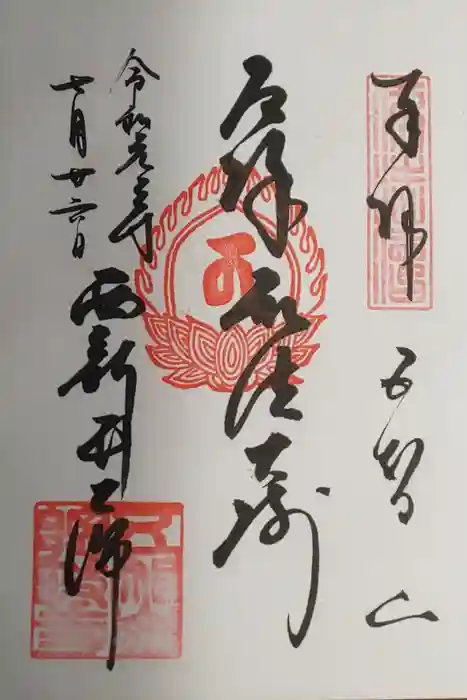 奉拝
五智山
厄除弘法大師
令和元年
七月廿六日
西新井大師